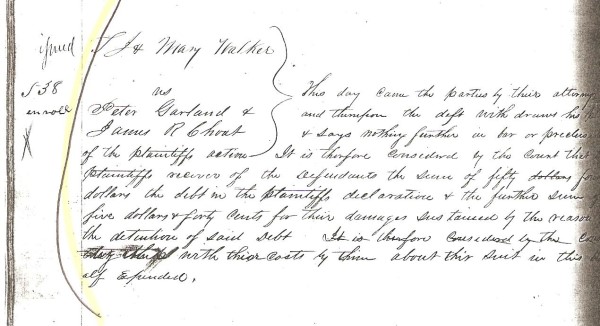 issued
538
enroll
T J & Mary Walker
vs
Peter Garland &
James R Choat
This day came the parties by their attorney
and therupon the deft with draws his
& says nothing further in bar or preclu
of the plaintiffs action It is therfore considered by the Court that
plaintiffs recover of the defendants the sum of fifty dollars fo
dollars the debt in the plaintiffs declaration & the further sum
five dollars & forty cents for their damages sustained by the reason
the detention of said Debt It is therfore considered by the Co
with thier costs by them about thir suit in this
alf Expended.